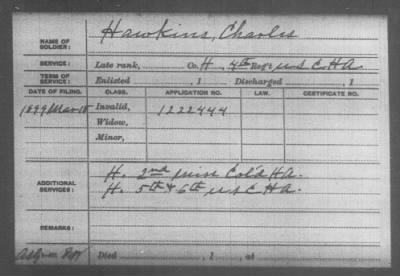 NAME OF SOLDIER: Hawkins, Charles
SERVICE: Late rank, Co. H, 4th Reg't U S C H A
TERM OF SERVICE: Enlisted , 1 Discharged , 1
DATE OF FILING. CLASS. APPLICATION NO. LAW. CERTIFICATE NO.
1899 Mar 18 Invalid, 1222444
Widow,
Minor,
ADDITIONAL SERVICES: H. 2nd Miss Col'd H A.
H. 5th & 6th U S C H A.
REMARKS:
Died , 1 , at